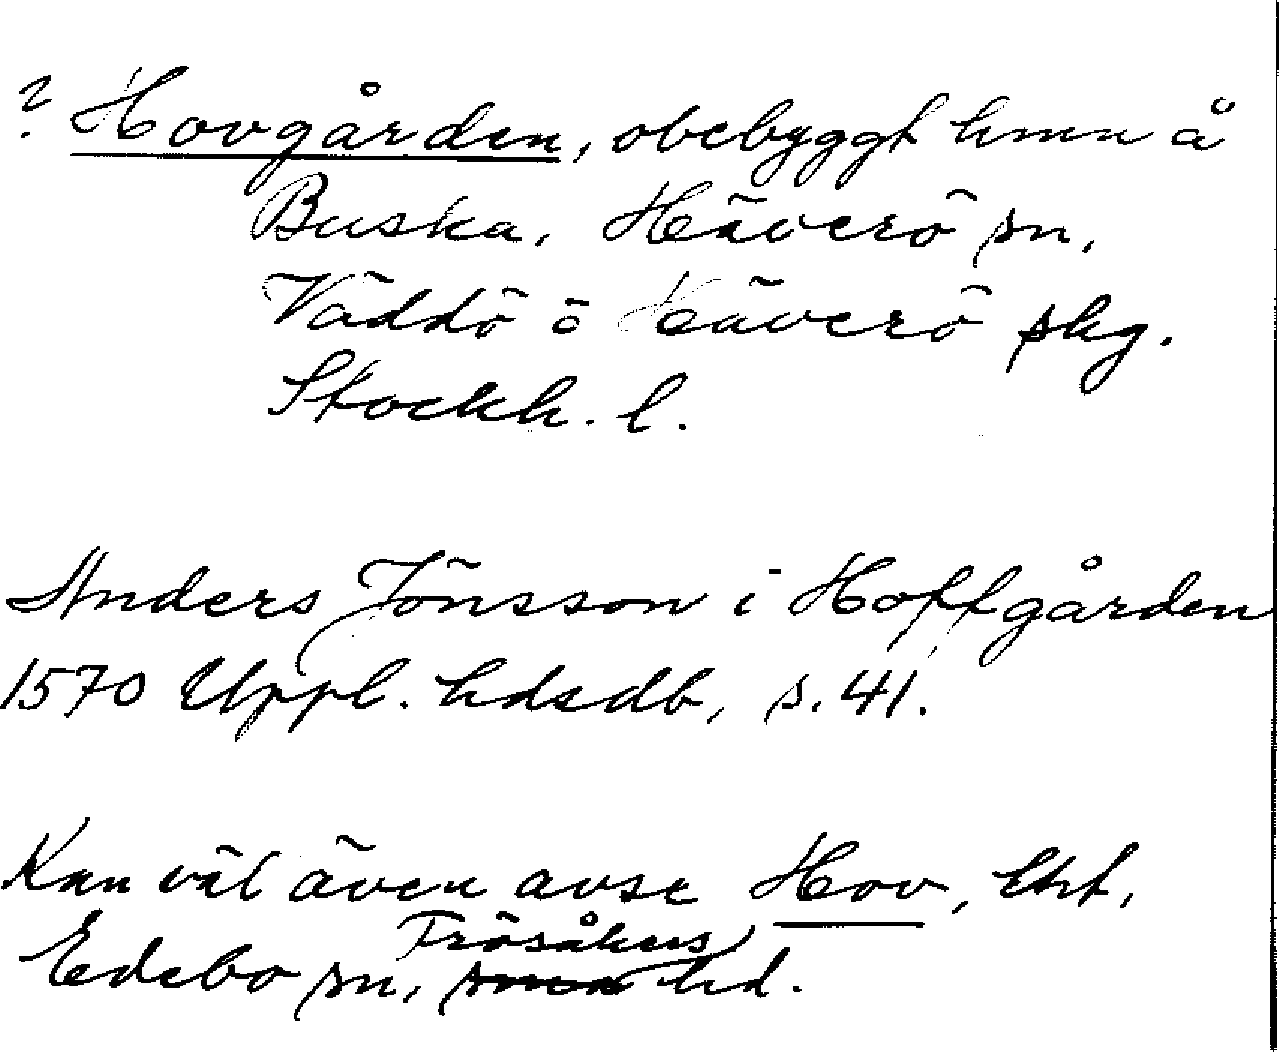 ? Hovgården, obebyggt hmn å
Buska, Häverö sn,
Väddö o Häverö skg.
Stockh. l.
Anders Jönsson i Hoffgården
1570 Uppl. hdsdb, s. 41.
Kan väl även avse Hov, Ekt,
Frösåkers
Edebo sn, hd.